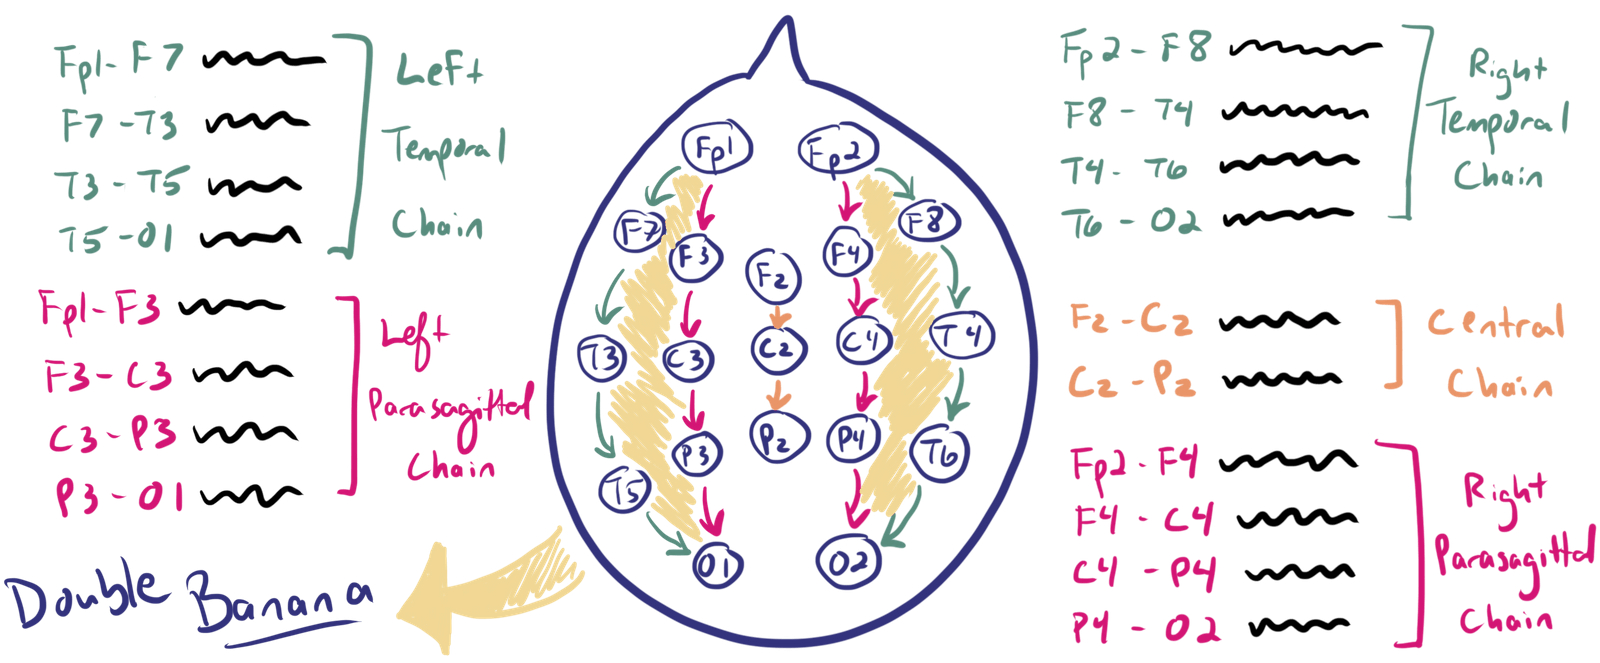 Fp1-F7
F7-T3
T3-T5
T5-O1
Left
Temporal
Chain
Fp1-F3
F3-C3
C3-P3
P3-O1
Left
Parasagittal
Chain
Double Banana
Fp1
Fp2
F7
F3
Fz
F4
F8
T3
C3
Cz
C4
T4
T5
P3
Pz
P4
T6
O1
O2
Fp2-F8
F8-T4
T4-T6
T6-O2
Right
Temporal
Chain
Fz-Cz
Cz-Pz
Central
Chain
Fp2-F4
F4-C4
C4-P4
P4-O2
Right
Parasagittal
Chain